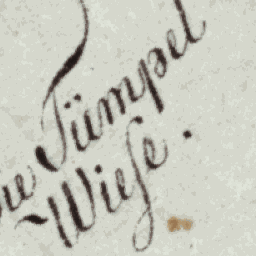 Tümpel
Wiese.